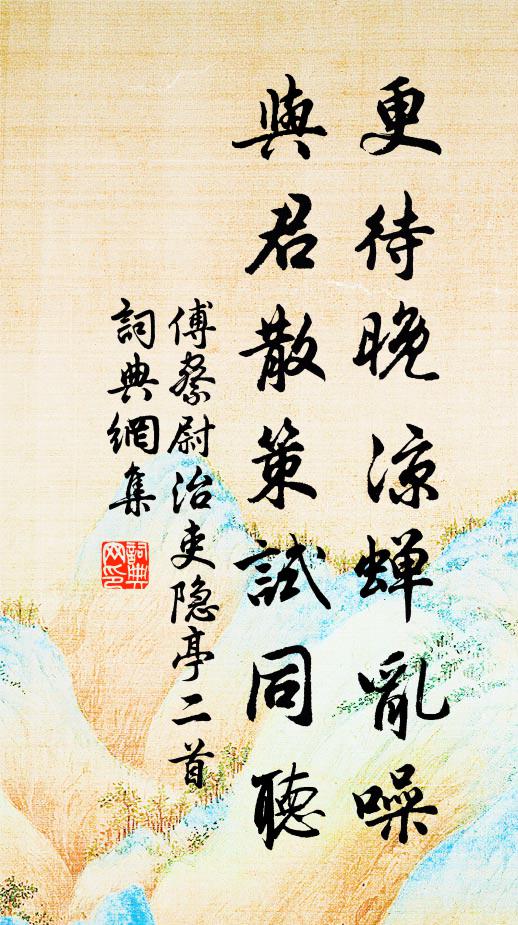 更待晚凉蝉亂噪
與君散策試同聽
傅祭尉治吏隐亭二首
詞典網集
詞典网印